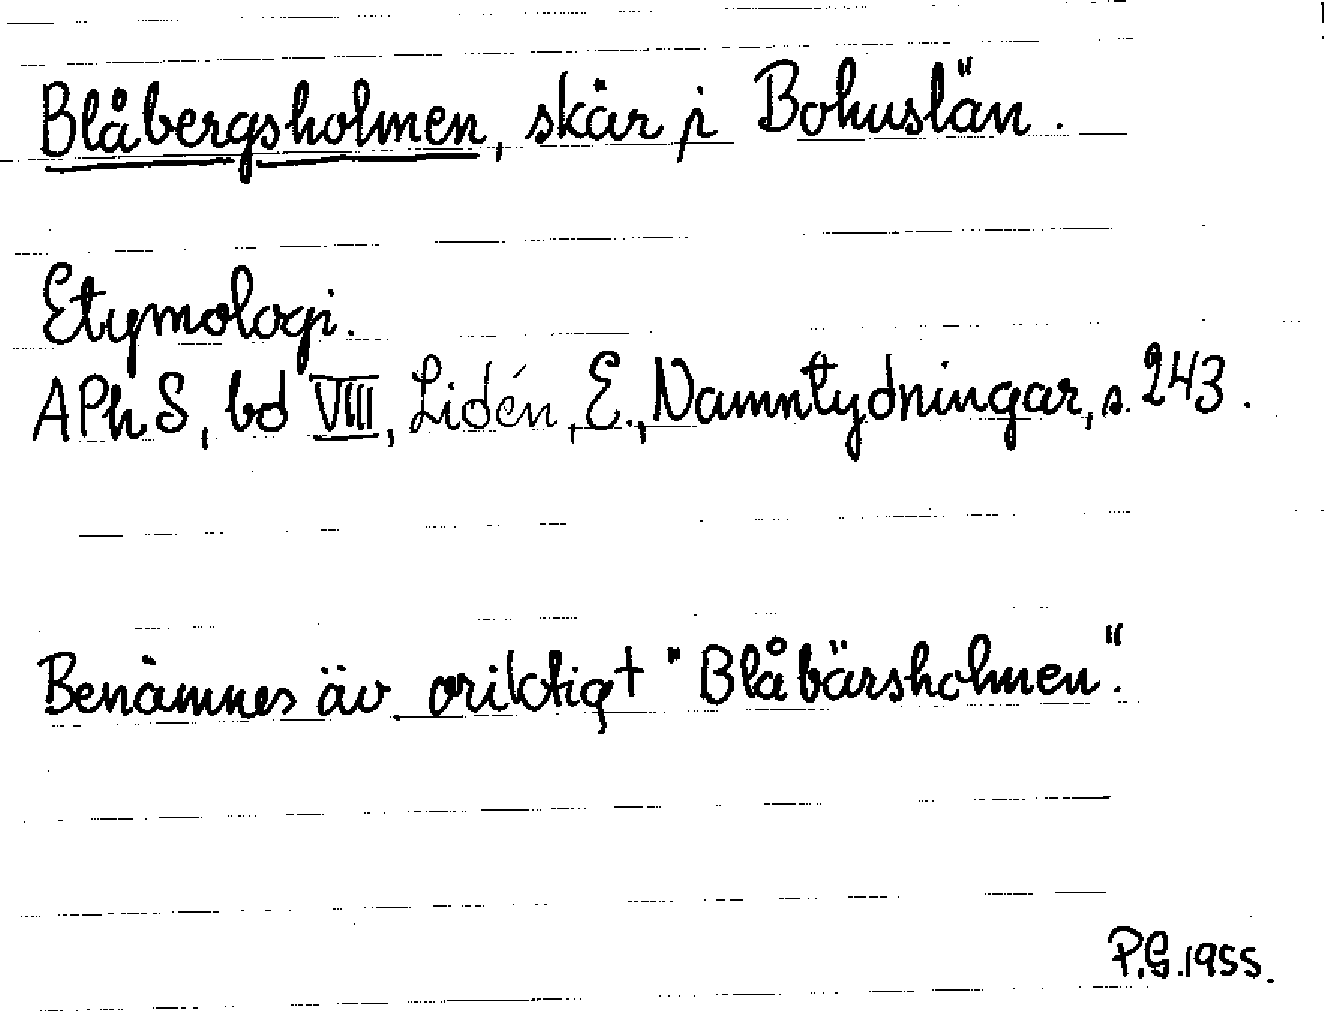 Blåbergsholmen, skär i Bohuslän.
Etymologi.
APhS, bd VIII, Lidén, E., Namntydningar, s. 243.
Benämnes äv oriktigt "Blåbärsholmen".
P.G. 1955.